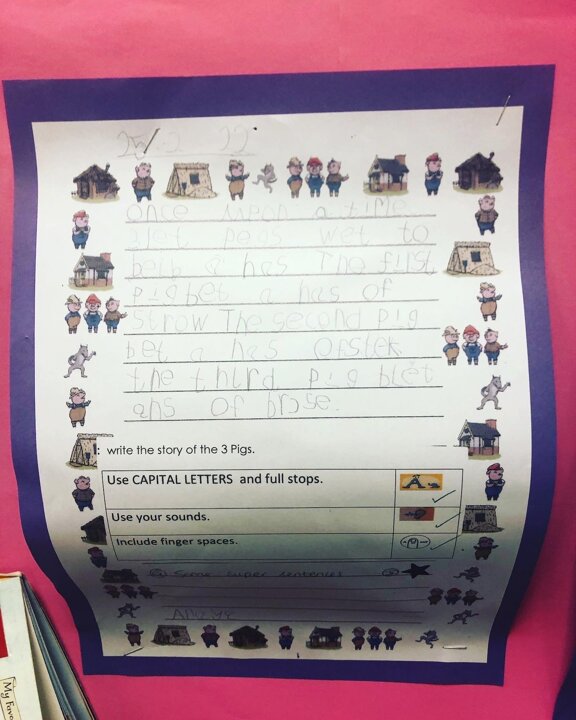 25/2 22
once upon a time
pegs wet to
a has The first
pig bet a has of
strow The second pig
bet a has ofstek
the third pig blet
ans of brose.
: write the story of the 3 Pigs.
Use CAPITAL LETTERS and full stops.
Use your sounds.
Include finger spaces.
Some super sentences
My Favo